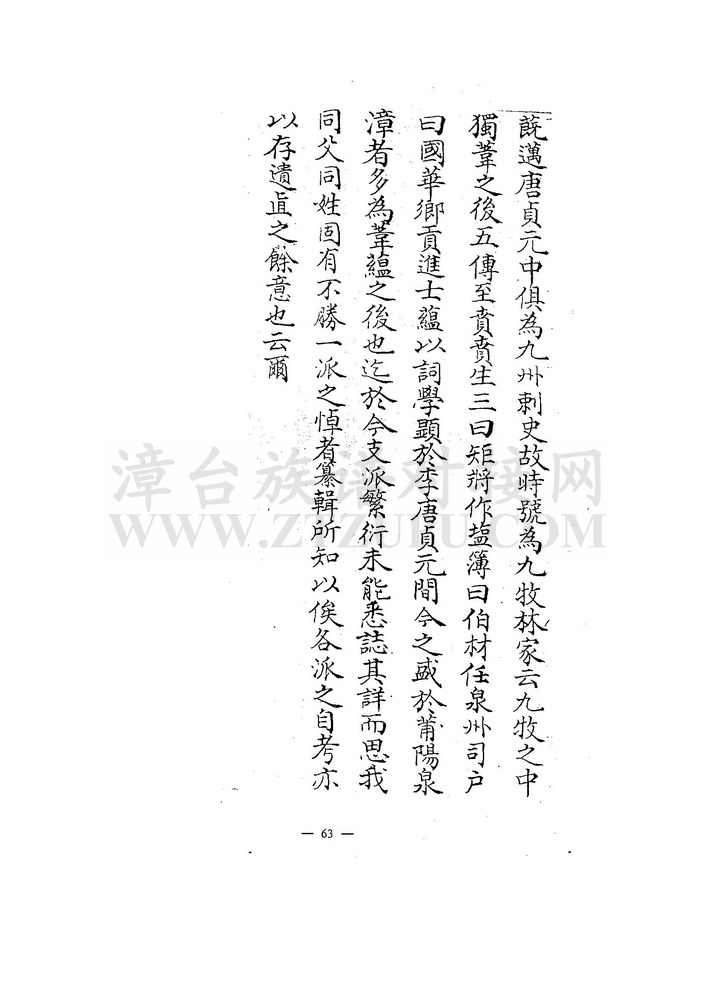 蕘邁唐貞元中俱為九州刺史故時號為九牧林家云九牧之中
獨葦之後五傳至賁賁生三曰矩將作監簿曰伯材任泉州司户
曰國華鄉貢進士蘊以詞學顯於李唐貞元間今之盛於莆陽泉
漳者多為葦蘊之後也迄於今支派繁衍未能悉誌其詳而思我
同父同姓固有不勝一派之悼者纂輯所知以俟各派之自考亦
以存遺直之餘意也云爾
漳台族谱对接网
WWW.ZTZUPU.COM
— 63 —